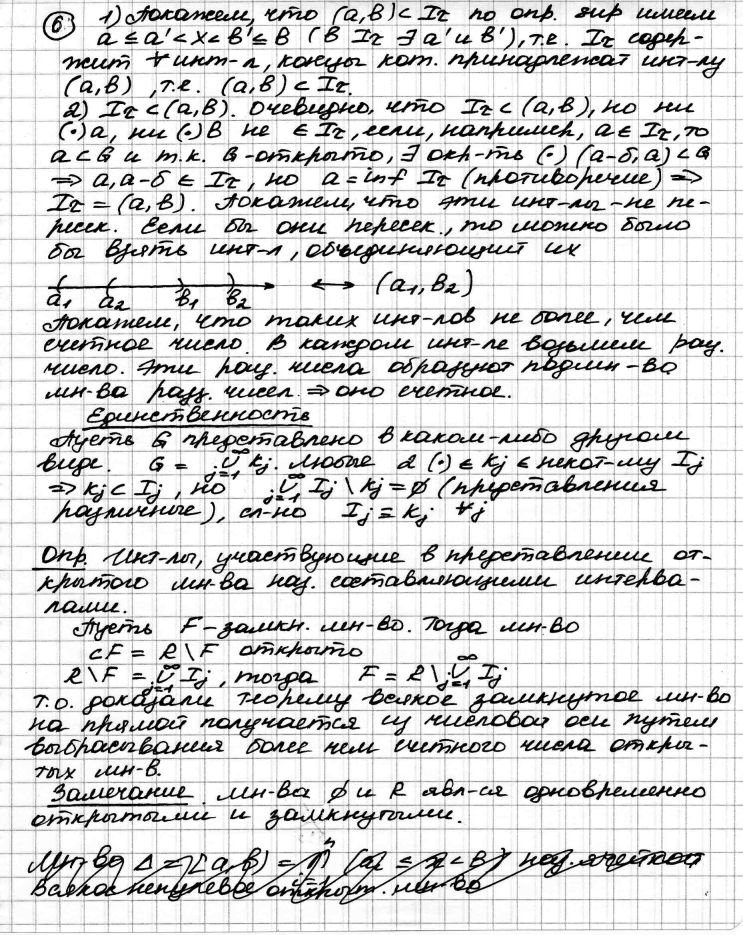 ⑥ 1) Докажем, что (a,b) ⊂ Iτ по опр. sup имеем
a ≤ a' < x < b' ≤ b (в Iτ ∃ a' и b'), т.е. Iτ содер-
жит ∀ инт-л, концы кот. принадлежат инт-лу
(a,b), т.е. (a,b) ⊂ Iτ.
2) Iτ ⊂ (a,b). Очевидно, что Iτ ⊂ (a,b), но ни
(·) a, ни (·) b не ∈ Iτ, если, например, a ∈ Iτ, то
a ⊂ G и т.к. G - открыто, ∃ окр-ть (·) (a-δ, a) ⊂ G
⇒ a, a-δ ∈ Iτ, но a = inf Iτ (противоречие) ⇒
Iτ = (a,b). Докажем, что эти инт-лы - не пе-
ресек. Если бы они пересек., то можно было
бы взять инт-л, объединяющий их
a₁ a₂ b₁ b₂ ⟷ (a₁, b₂)
Докажем, что таких инт-лов не более, чем
счетное число. В каждом инт-ле возьмем рац.
число. Эти рац. числа образуют подмн-во
мн-ва рац. чисел ⇒ оно счетное.
Единственность
Пусть G представлено в каком-либо другом
виде. G = ∪_{j=1}^∞ Kj. Любые 2 (·) ∈ Kj ∈ некот-му Ij
⇒ Kj ⊂ Ij, но ∪_{j=1}^∞ Ij \ Kj = ∅ (представления
различные), сл-но Ij ≡ Kj ∀j
Опр. Инт-лы, участвующие в представлении от-
крытого мн-ва наз. составляющими интерва-
лами.
Пусть F - замкн. мн-во. Тогда мн-во
cF = R \ F открыто
R \ F = ∪_{j=1}^∞ Ij, тогда F = R \ ∪_{j=1}^∞ Ij
т.о. доказали теорему всякое замкнутое мн-во
на прямой получается из числовой оси путем
выбрасывания более чем счетного числа откры-
тых мн-в.
Замечание. мн-ва ∅ и R явл-ся одновременно
открытыми и замкнутыми.
Мн-во Δ = [a,b) = ∏ (a ≤ x < b) наз. ячейкой
Всякое ненулевое открыт. мн-во